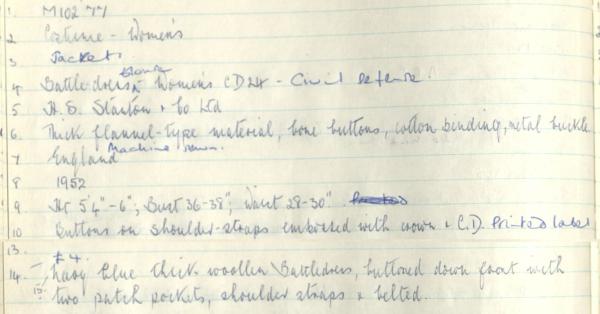 1. M102'77
2 Costume - Women's
3 Jacket.
4 Battledress Blouse Women's CD24 - Civil Defence.
5 H.S. Stanton + Co Ltd
6. Thick flannel-type material, bone buttons, cotton binding, metal buckle
7 England Machine sewn.
8 1952
9 Ht 5'4"-6"; Bust 36-38"; Waist 28-30"
10 Buttons on shoulder-straps embossed with crown + C.D. Printed label
13. £4.
14. Navy blue thick woollen Battledress, buttoned down front with
15. two patch pockets, shoulder straps & belted.